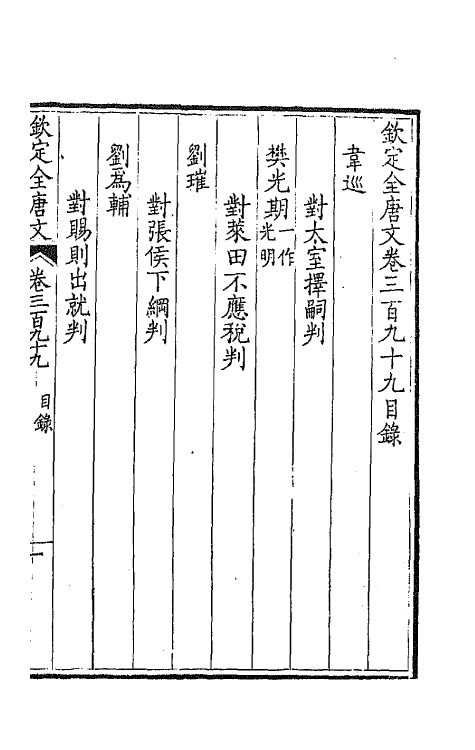 欽定全唐文卷三百九十九目錄
韋巡
對太室擇嗣判
樊光期一作光明
對萊田不應稅判
劉璀
對張侯下綱判
劉爲輔
對賜則出就判
欽定全唐文 卷三百九十九 目錄 一